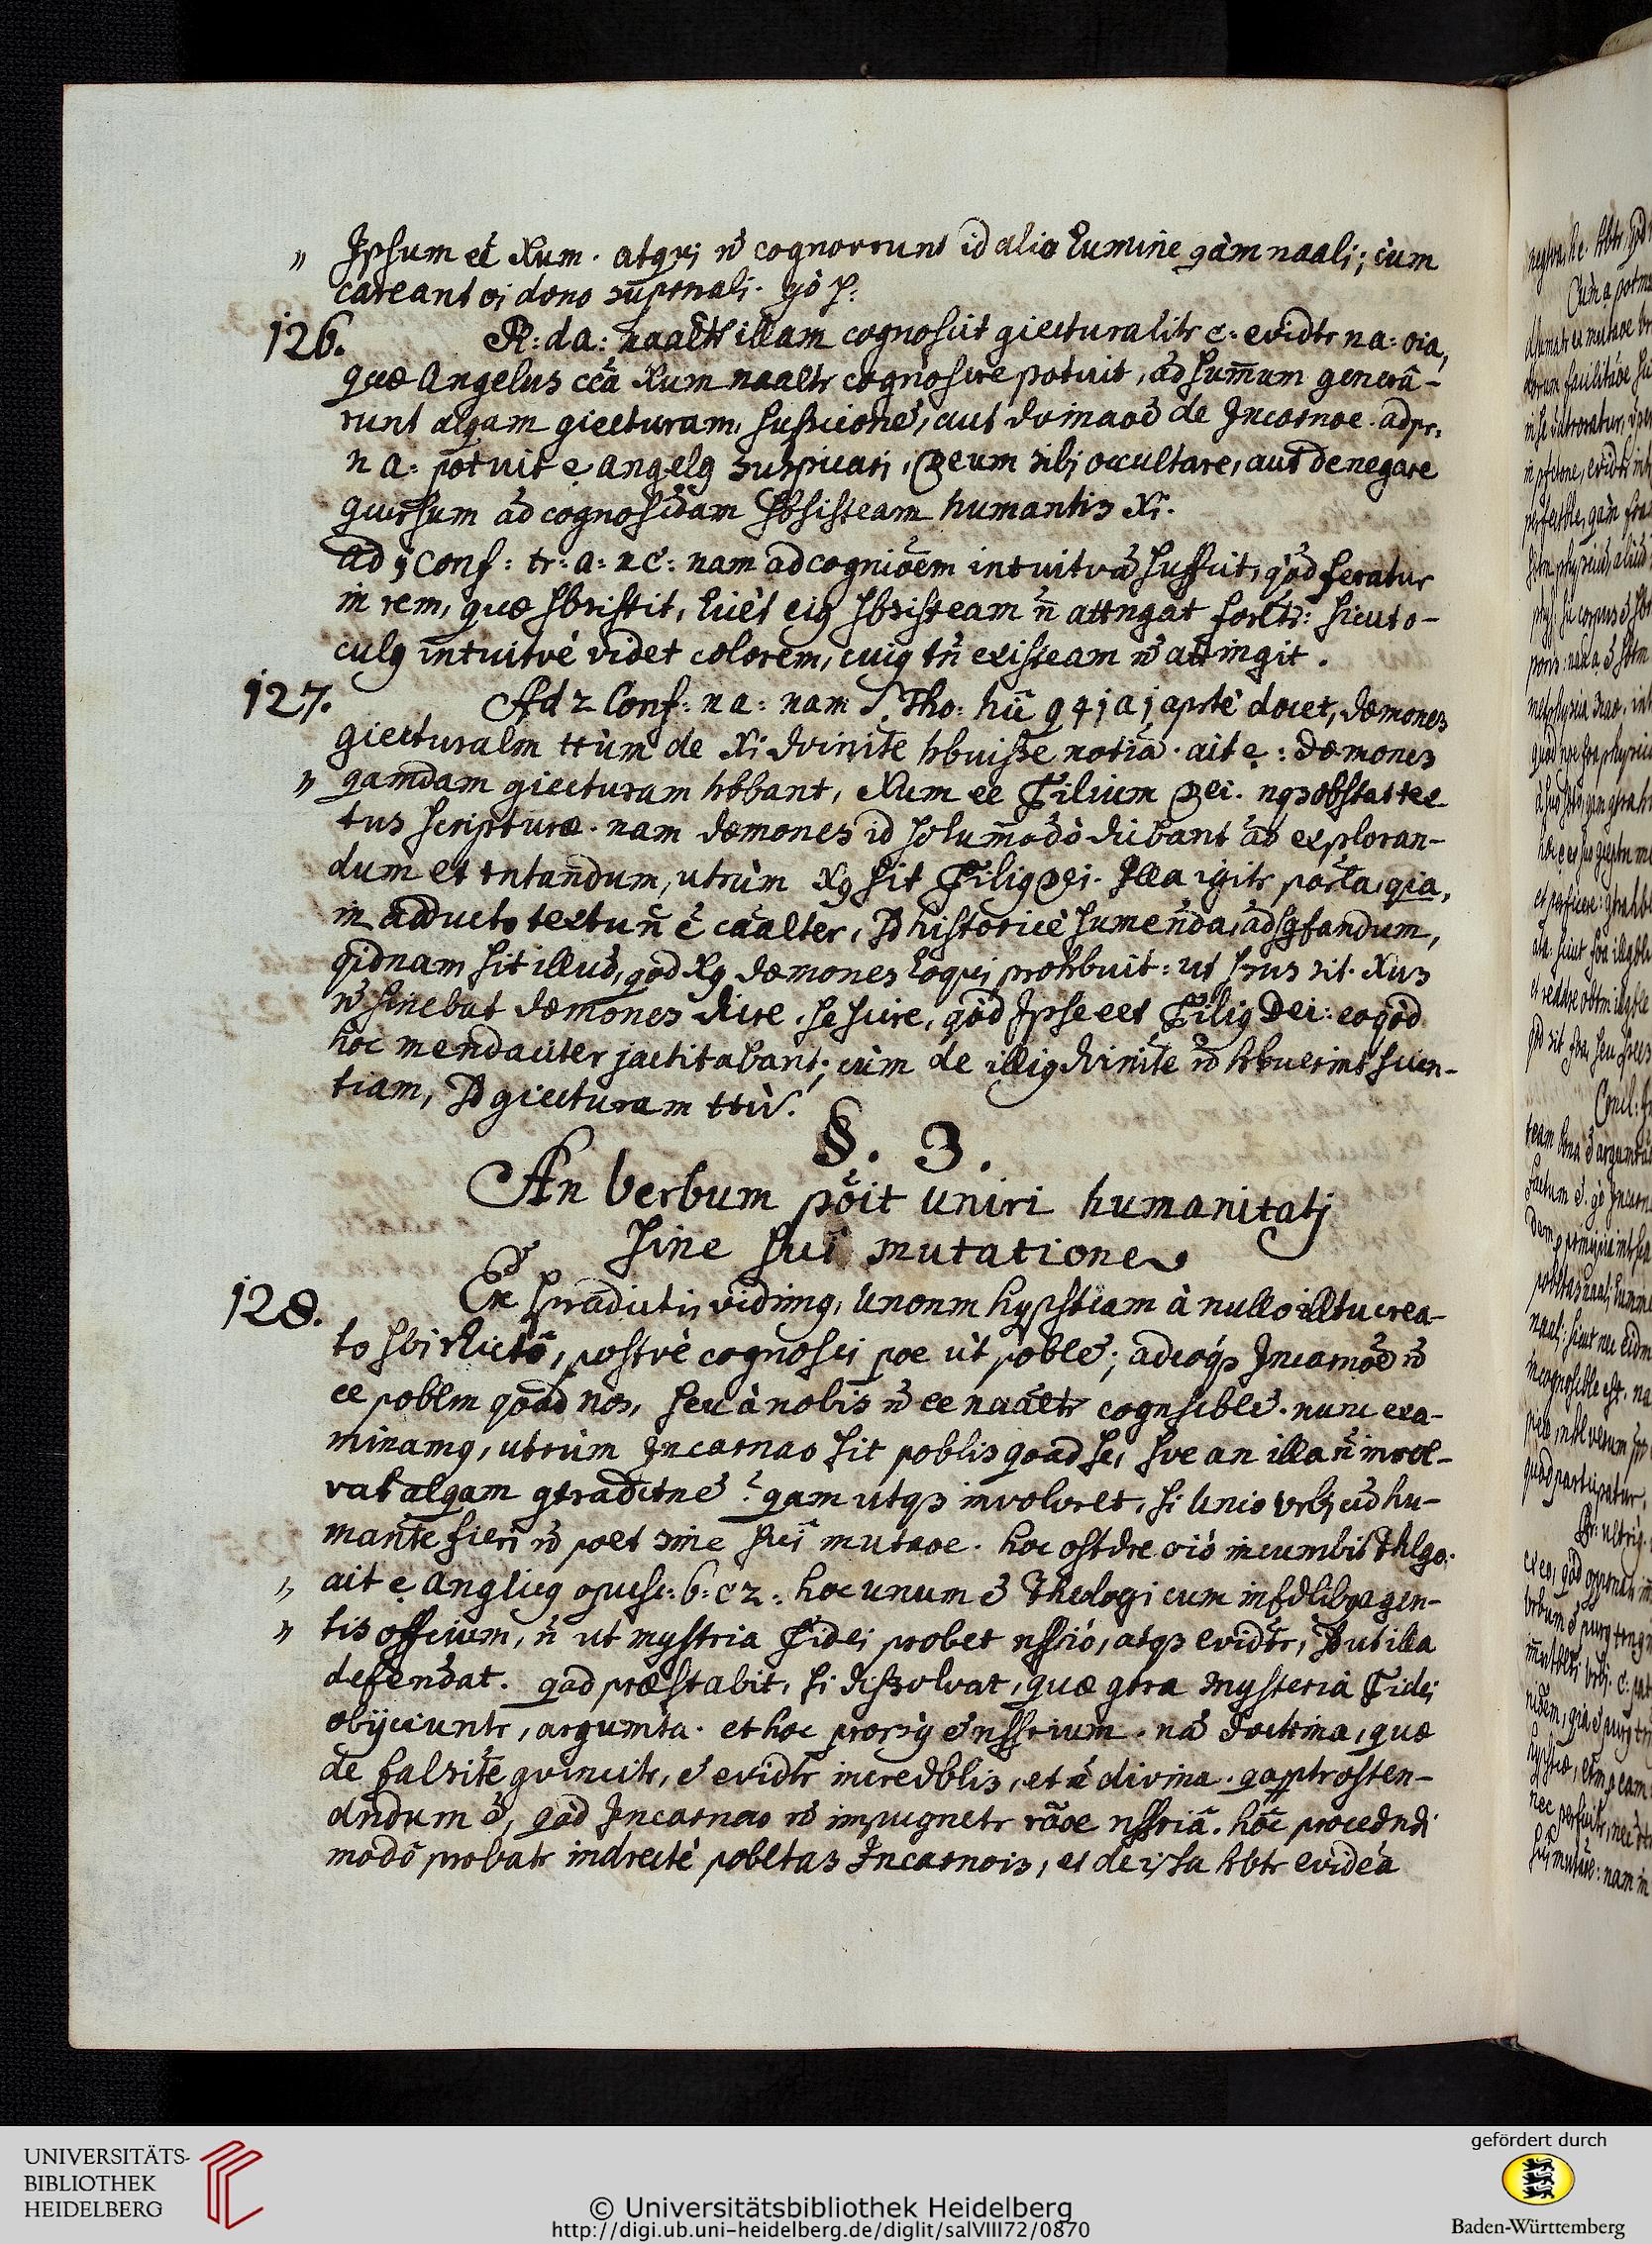 " Ipsum eē Xum. atqui nō cognorrunt id alio Lumine qàm naali; cùm
careant oi dono supernali. gò P:
126. R: da: naaltr illam cognoscit giecturalitr c: evidtr na: oia,
quæ Angelus ccā Xum naaltr cognoscere potuit, ad sum̄um generâ-
runt alqam giecturam, suspicionē, aut dvinaoē de Incarnoe. adpr.
n a: potuit e. angelg suspicari, Deum sibi occultare, aut denegare
gcursum ad cognoscdam sbsisteam humantis Xi.
ad j Conf: tr: a: n c: nam ad cognioēm intuitvā sufficit, qòd feratur
in rem, quæ sbsistit, licèt eig sbsisteam n̄ attngat forltr: sicut o-
culg intuitvè videt colorem, cuig tn̄ existeam nō attingit.
127. Ad 2 Conf: n a: nam S. Tho: hîc q 4j a j aprtè docet, dæmones
giecturalm ttùm de Xi dvinite hbuisse notiā. ait e.: dæmones
" qamdam giecturam hbbant, Xum ee Filium Dei. nqз obstat tex-
tus scripturæ. nam dæmones id solum̄odò dicbant ad exploran-
dum et tntandum, utrùm Xg sit Filig Dei. Illa igitr partla, qia,
in adducto textu n̄ ē caalter, sd historicè sumenda, ad sgfandum,
qidnam sit illud, qod Xg dæmones loqui prohbuit: ut ssus sit. Xus
nō sinebat dæmones dicre, se scire, qòd Ipse eet Filig Dei: eo qòd
hoc mendaciter jactitabant; cùm de illig dvinite nō hbuerint scien-
tiam, sd giecturam ttù.
§. 3.
An Verbum pōit uniri humanitati
sine sui mutatione
128. Ex prædictis vidimg, Unonm hypstiam à nullo illtu crea-
to sbi rlicto, postvè cognosci poe ùt poblē; adeoqз Incarnōē nō
ee poblm qoad nos, seu à nobis nō ee naaltr cognscblē. nunc exa-
minamg, utrùm Incarnao sit poblis qoad se, sve an illa n̄ invol-
vat alqam gtradctnē? qam utqз involvret, si Unio vrbi cū hu-
mante fieri nō poet sine sui mutaoe. hoc ostdre oiò incumbit Thlgo.
" ait e. Anglicg opusc: 6: c 2: hoc unum ē Theologi cum infdlibg agen-
" tis officium, n̄ ut mystria Fidei probet nssriò, atqз evidtr, sd ut illa
defendat. qod præstabit, si dissolvat, quæ gtra mysteria Fidei
obijciuntr, argumta. et hoc prorsg ē nssrium. nā doctrina, quæ
de falsite gvincitr, ē evidtr incredblis, et ē divina. qapptr osten-
dndum ē, qòd Incarnao nō impugnetr rāoe nssriā. hōc procedndi
modō probatr indrectè pobltas Incarnois, et de ista hbtr evideā
UNIVERSITÄTS-
BIBLIOTHEK
HEIDELBERG
© Universitätsbibliothek Heidelberg
http://digi.ub.uni-heidelberg.de/diglit/salVIII72/0870
gefördert durch
Baden-Württemberg